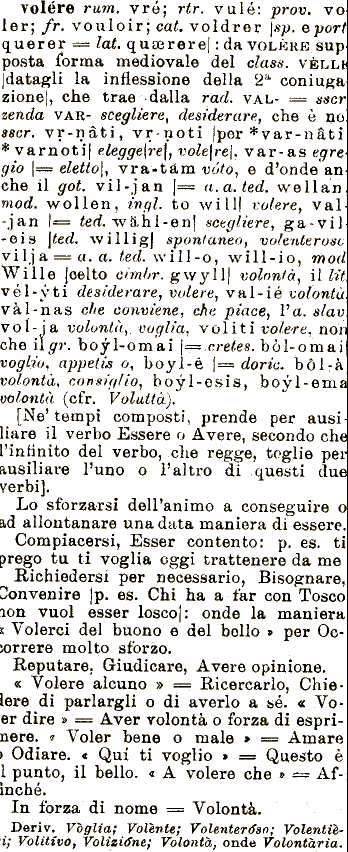 volére rum. vré; rtr. vulé: prov. vo-
ler; fr. vouloir; cat. voldrer |sp. e port
querer = lat. quærere|: da VOLÈRE sup-
posta forma medievole del class. VÈLLE
|datagli la inflessione della 2ª coniuga-
zione|, che trae dalla rad. VAL- = sscr
zenda VAR- scegliere, desiderare, che è nel
sscr. vṛ-ṇâti, vṛ-ṇoti |per *var-nâti
*varnoti| elegge[re], vole[re], var-as egre-
gio |= eletto|, vra-tám vóto, e d'onde an-
che il got. vil-jan |= a. a. ted. wellan
mod. wollen, ingl. to will| volere, val-
-jan |= ted. wähl-en| scegliere, ga-vil-
-eis |ted. willig| spontaneo, volenteroso
vilja = a. a. ted. will-o, will-io, mod
Wille |celto cimbr. gwyll| volontà, il lit.
vél-ýti desiderare, volere, val-ié volontà
vàl-nas che conviene, che piace, l'a. slav.
vol-ja volontà, voglia, voliti volere, non
che il gr. boýl-omai |= cretes. ból-omai|
voglio, appetis o, boyl-é |= doric. ból-à|
volontà, consiglio, boýl-esis, boýl-ema
volontà (cfr. Voluttà).
[Ne' tempi composti, prende per ausi-
liare il verbo Essere o Avere, secondo che
l'infinito del verbo, che regge, toglie per
ausiliare l'uno o l'altro di questi due
verbi].
Lo sforzarsi dell'animo a conseguire o
ad allontanare una data maniera di essere.
Compiacersi, Esser contento: p. es. ti
prego tu ti voglia oggi trattenere da me
Richiedersi per necessario, Bisognare,
Convenire |p. es. Chi ha a far con Tosco
non vuol esser losco|: onde la maniera
« Volerci del buono e del bello » per Oc-
correre molto sforzo.
Reputare, Giudicare, Avere opinione.
« Volere alcuno » = Ricercarlo, Chie-
dere di parlargli o di averlo a sé. « Vo-
er dire » = Aver volontà o forza di espri-
mere. « Voler bene o male » = Amare
o Odiare. « Quí ti voglio » = Questo è
l punto, il bello. « A volere che » = Af-
finché.
In forza di nome = Volontà.
Deriv. Vòglia; Volènte; Volenteróso; Volentiè-
ri; Volitívo, Volizióne; Volontà, onde Volontària.